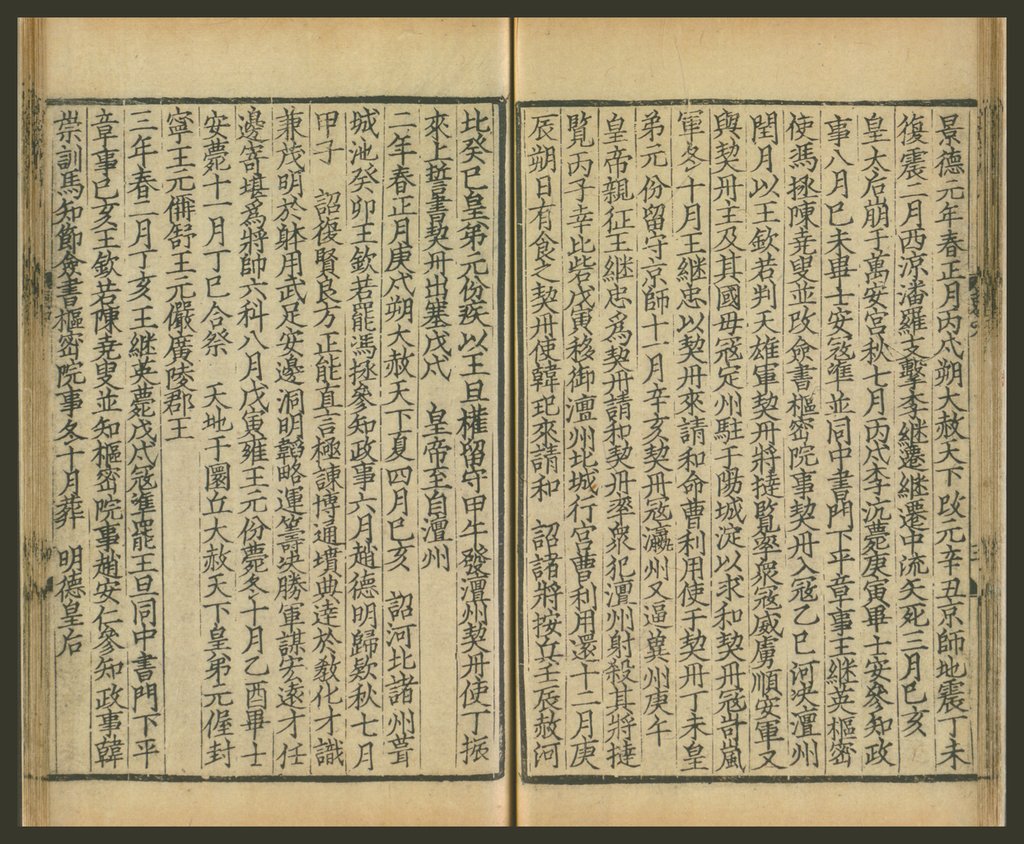 景德元年春正月丙戌朔大赦天下改元辛丑京師地震丁未
復震二月西涼潘羅支擊李繼遷繼遷中流矢死三月己亥
皇太后崩于萬安宮秋七月丙戌李沆薨庚寅畢士安參知政
事八月己未畢士安寇準並同中書門下平章事王繼英樞密
使馮拯陳堯叟並改僉書樞密院事契丹入寇乙巳河決澶州
閏月以王欽若判天雄軍契丹將撻覽率衆寇威虜順安軍又
與契丹主及其國母寇定州駐于陽城淀以求和契丹寇岢嵐
軍冬十月王繼忠以契丹來請和命曹利用使于契丹丁未皇
弟元份留守京師十一月辛亥契丹寇瀛州又逼兾州庚午
皇帝親征王繼忠爲契丹請和契丹率衆犯澶州射殺其將撻
覽丙子幸北砦戊寅移御澶州北城行宮曹利用還十二月庚
辰朔日有食之契丹使韓𣏌來請和　詔諸將按兵壬辰赦河
北癸巳皇弟元份疾以王旦權留守甲午發澶州契丹使丁振
來上誓書契丹出塞戊戌　皇帝至自澶州
二年春正月庚戌朔大赦天下夏四月己亥　詔河北諸州葺
城池癸卯王欽若罷馮拯參知政事六月趙德明歸欵秋七月
甲子　詔復賢良方正能直言極諫博通墳典達於敎化才識
兼茂明於躰用武足安邊洞明韜略運籌決勝軍謀宏遠才任
邊寄堪爲將帥六科八月戊寅雍王元份薨冬十月乙酉畢士
安薨十一月丁巳合祭　天地于圜丘大赦天下皇弟元偓封
寧王元偁舒王元儼廣陵郡王
三年春二月丁亥王繼英薨戊戌寇準罷王旦同中書門下平
章事己亥王欽若陳堯叟並知樞密院事趙安仁參知政事韓
崇訓馬知節僉書樞密院事冬十月葬　明德皇后